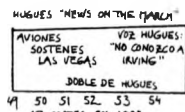 HUGUES "NEWS ON THE MARCH"
AVIONES
SOSTENES
LAS VEGAS
VOZ HUGUES:
"NO CONOZCO A
IRVING"
DOBLE DE HUGUES
49 50 51 52 53 54